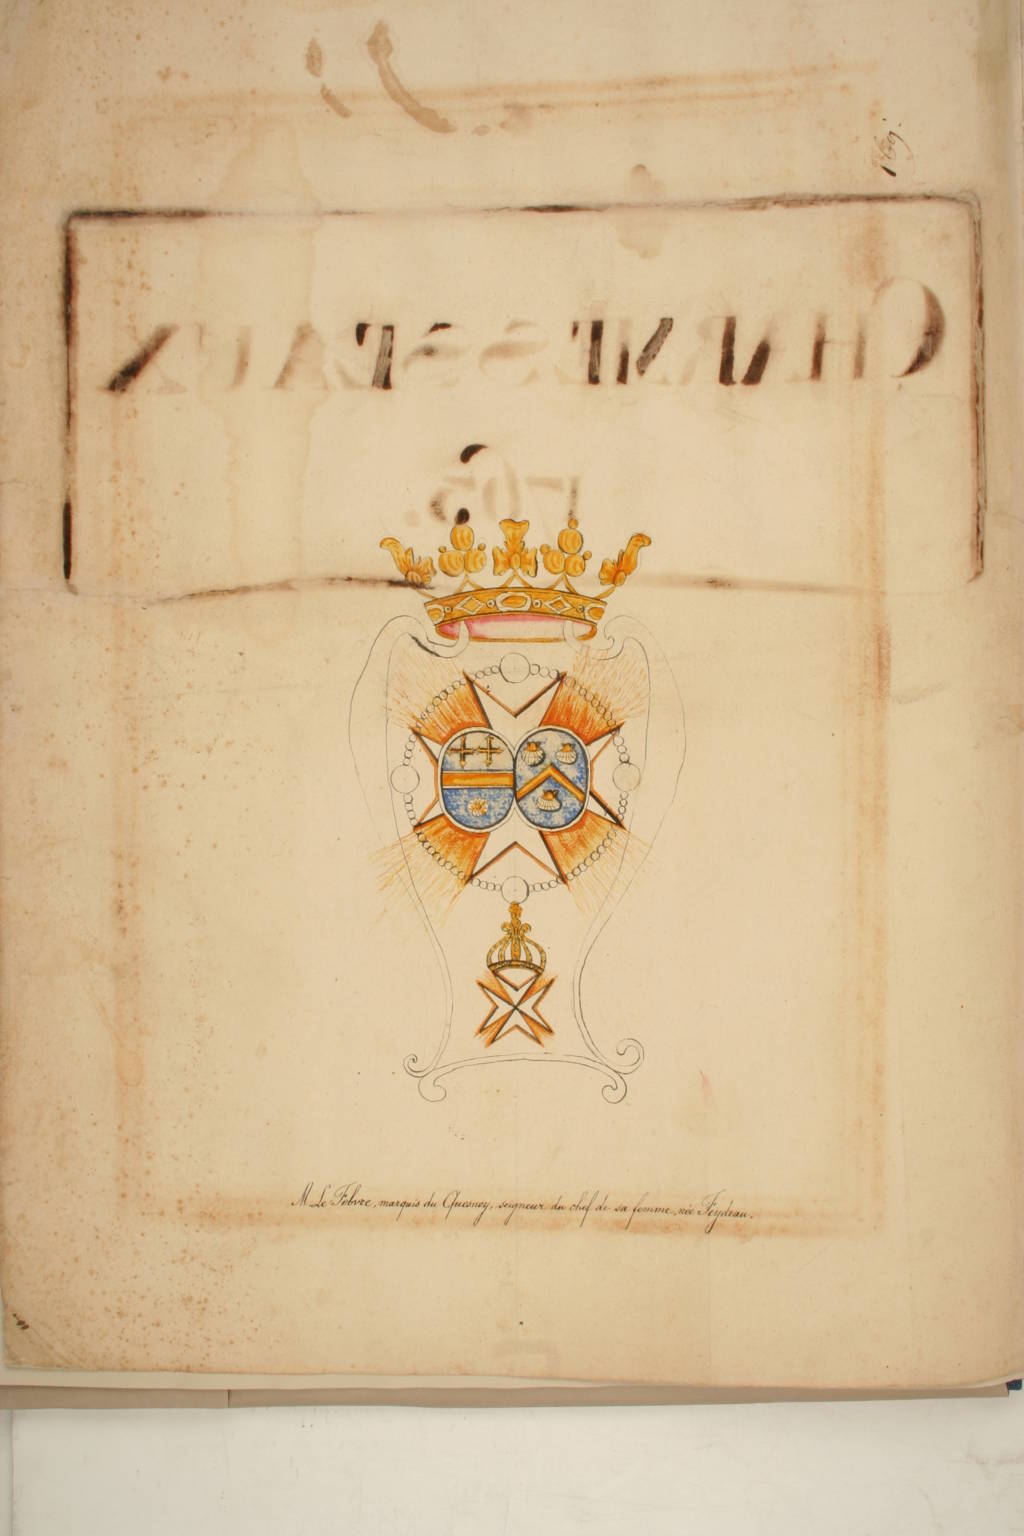 1769.
CHARMESSEAUX
1763.
M Le Febvre, marquis du Quesnoy, seigneur du chef de sa femme, née Feydeau.